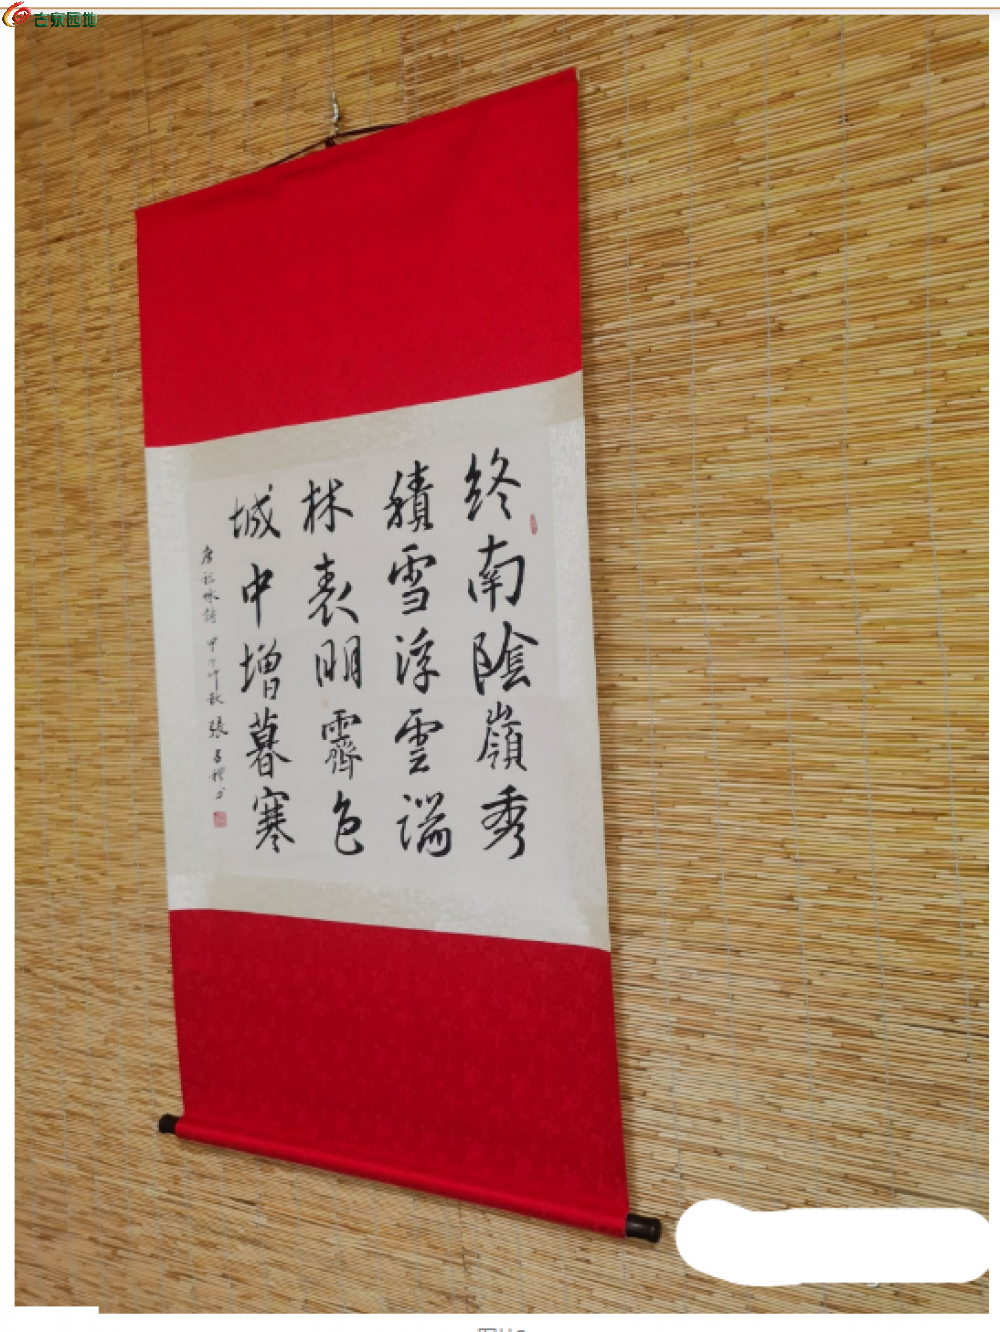 古泉园地
終南陰嶺秀
積雪浮雲端
林表明霽色
城中增暮寒
唐祖咏詩 甲午年秋 張